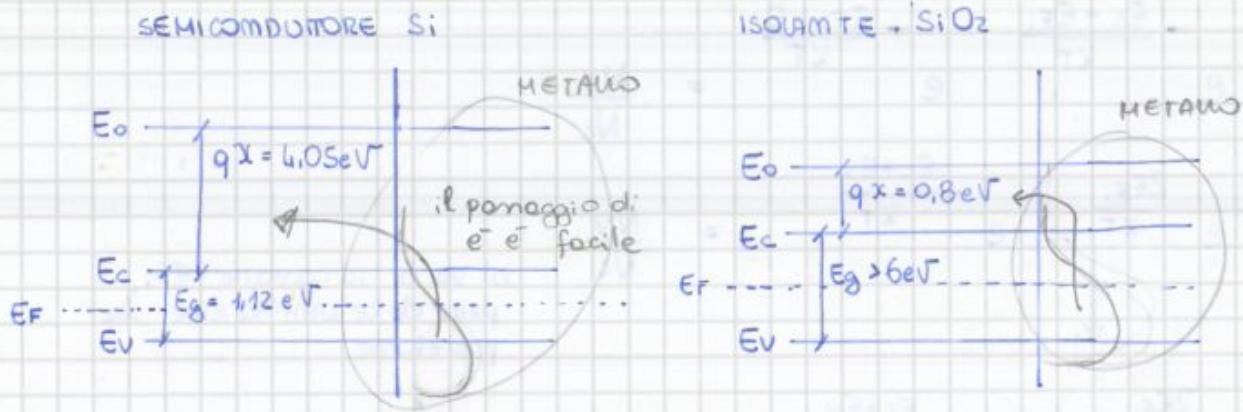 SEMICONDUTTORE Si
METALLO
E0
qχ = 4,05eV
il passaggio di
e⁻ è facile
Ec
EF
Eg = 1,12 eV
Ev
ISOLANTE . SiO2
METALLO
E0
qχ = 0,8eV
Ec
EF
Eg > 6eV
Ev